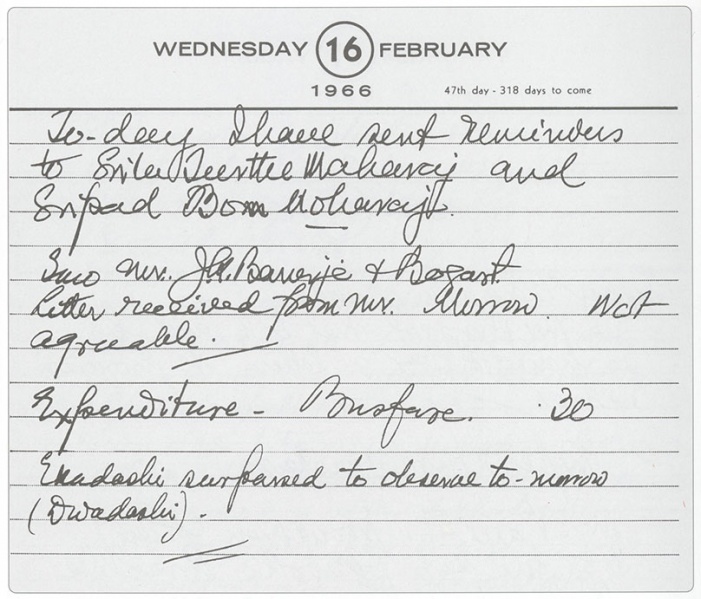 WEDNESDAY 16 FEBRUARY
1966 47th day - 318 days to come
To-day I have sent reminders
to Srila Teertha Maharaj and
Sripad Bon Moharaj.
Mr. J. Banerje & Bogart.
Letter received from Mr. Morrow. Not
agreeable.
Expenditure - Busfare. .30
Ekadashi surpassed to observe to-morrow
(Dwadashi).